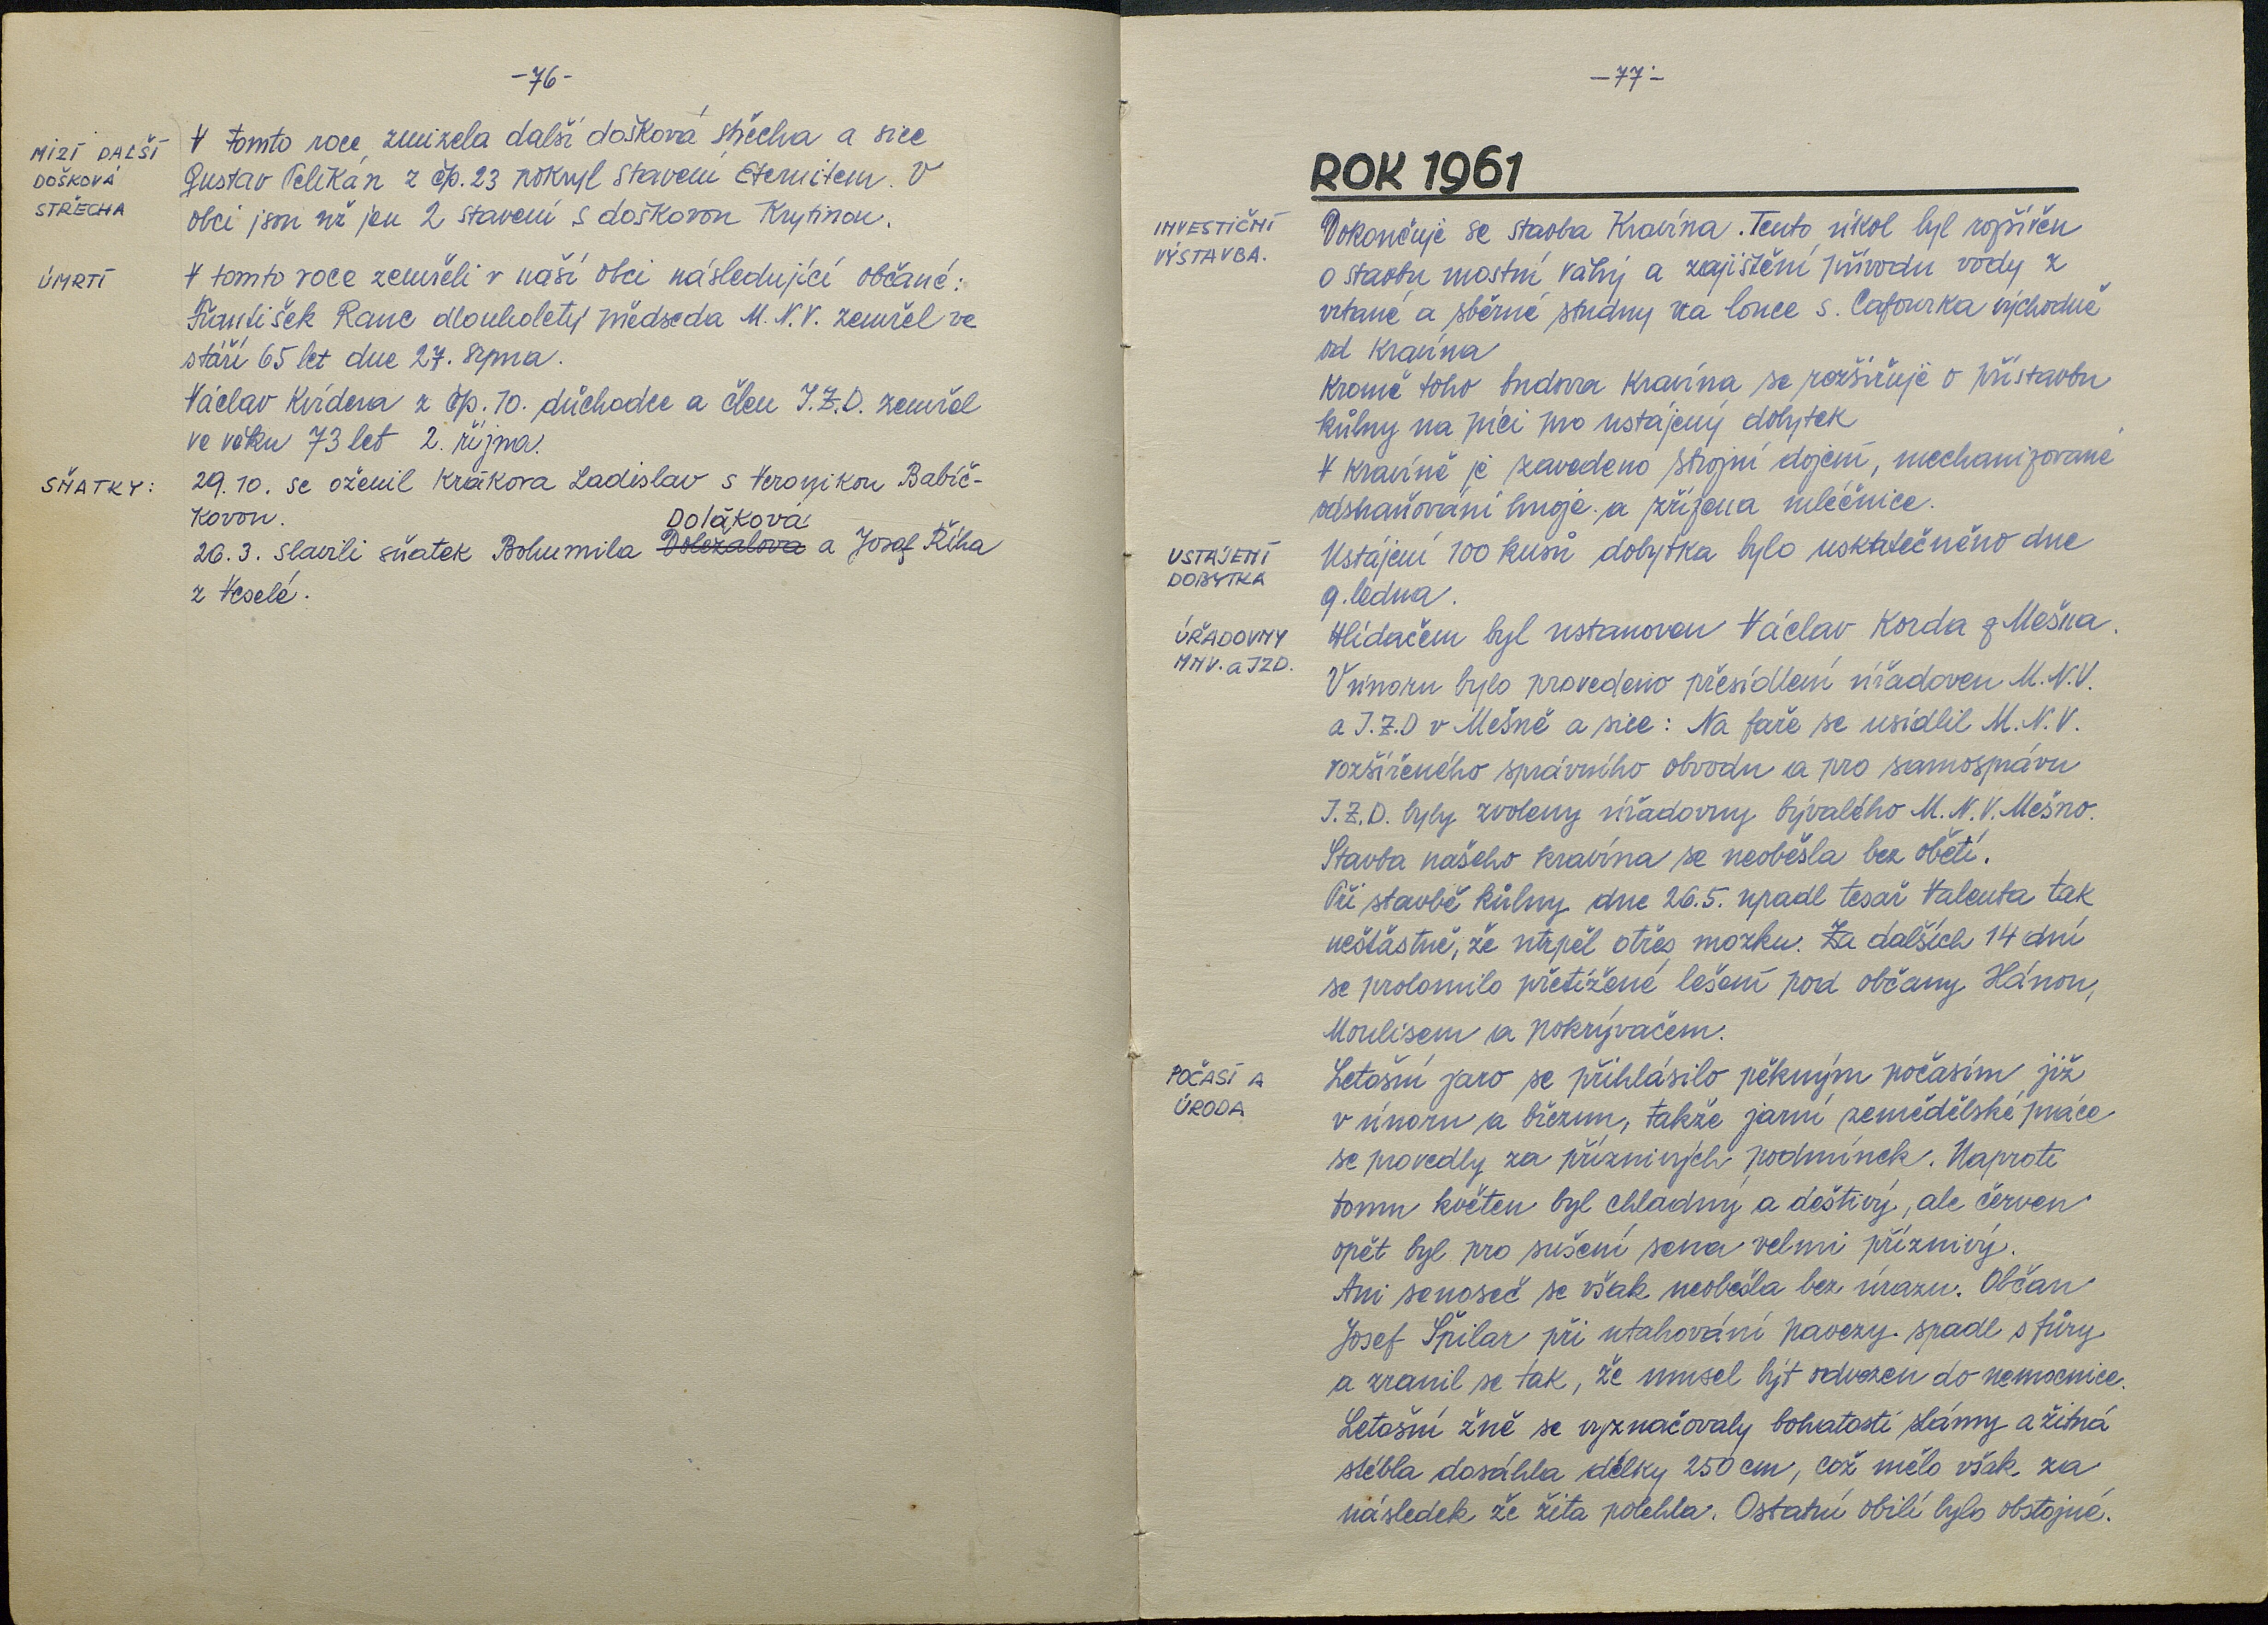 -76-
MIZÍ DALŠÍ
DOŠKOVÁ
STŘECHA
V tomto roce zmizela další došková střecha a sice
Gustav Pelikán z čp. 23 pokryl stavení Eternitem. V
obci jsou už jen 2 stavení s doškovou Krytinou.
ÚMRTÍ
V tomto roce zemřeli v naší obci následující občané:
František Ranc dlouholetý předseda M.N.V. zemřel ve
stáří 65 let dne 27. srpna.
Václav Kvídera z čp. 10. důchodce a člen J.Z.D. zemřel
ve věku 73 let 2. října.
SŇATKY:
29.10. se oženil Krákora Ladislav s Veronikou Babíč-
kovou.
Doláková
26.3. slavili sňatek Bohumila Doležalova a Josef Říha
z Veselé.
-77-
ROK 1961
INVESTIČNÍ
VÝSTAVBA.
Dokončuje se stavba Kravína. Tento úkol byl rozšířen
o stavbu mostní váhy a zajištění přívodu vody z
vrtané a sběrné studny na louce s. Cafourka východně
od Kravína
Kromě toho budova Kravína se rozšiřuje o přístavbu
kůlny na píci pro ustájený dobytek
V kravíně je zavedeno strojní dojení, mechanizované
odstraňování hnoje a zřízena mléčnice.
USTÁJENÍ
DOBYTKA
Ustájení 100 kusů dobytka bylo uskutečněno dne
9. ledna.
ÚŘADOVNY
MNV. a JZD.
Hlídačem byl ustanoven Václav Korda z Mešna.
V únoru bylo provedeno přesídlení úřadoven M.N.V.
a J.Z.D v Mešně a sice: Na faře se usídlil M.N.V.
rozšířeného správního obvodu a pro samosprávu
J.Z.D. byly zvoleny úřadovny bývalého M.N.V. Mešno.
Stavba našeho kravína se neoběšla bez obětí.
Při stavbě kůlny dne 26.5. upadl tesař Valenta tak
nešťastně, že utrpěl otřes mozku. Za dalších 14 dní
se prolomilo přetížené lešení pod občany Hánou,
Moulisem a pokrývačem.
POČASÍ A
ÚRODA
Letošní jaro se přihlásilo pěkným počasím již
v únoru a březnu, takže jarní zemědělské práce
se provedly za příznivých podmínek. Naproti
tomu květen byl chladný a deštivý, ale červen
opět byl pro sušení sena velmi příznivý.
Ani senoseč se však neobešla bez úrazu. Občan
Josef Špilar při utahování pavezy spadl s fůry
a zranil se tak, že musel být odvezen do nemocnice.
Letošní žně se vyznačovaly bohatostí slámy a žitná
stébla dosáhla délky 250 cm, což mělo však za
následek že žita polehla. Ostatní obilí bylo obstojné.